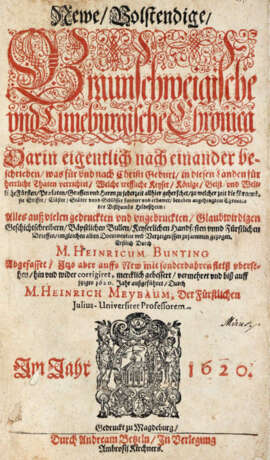 Newe/ Volstendige/
Braunschweigische
und Lüneburgische Chronica:
Darin eigentlich nach einander be-
schrieben/ was für und nach Christi Geburt/ in diesen Landen für
herrliche Thaten verrichtet/ Welche treffliche Keyser/ Könige/ Geist- und Welt-
Alles auß vielen gedruckten und ungedruckten/ Glaubwirdigen
Geschichtschreibern/ Bäpstlichen Bullen/ Keyserlichen Handfesten und Fürstlichen
Erstlich Durch
M. HEINRICUM BUNTING
Abgefasset/ Itzo aber auffs New mit sonderbahrem fleiß uberse-
hen/ hin und wider corrigiret, mercklich gebessert/ vermehret und biß auff
1620. Jahr außgeführet/ Durch
M. HEINRICH MEYBAUM, Der Fürstlichen
Julius-Universitet Professorem
Im Jahr 1620.
Gedruckt zu Magdeburg/
Durch Andream Betzeln/ In Verlegung
Ambrosij Kirchners.